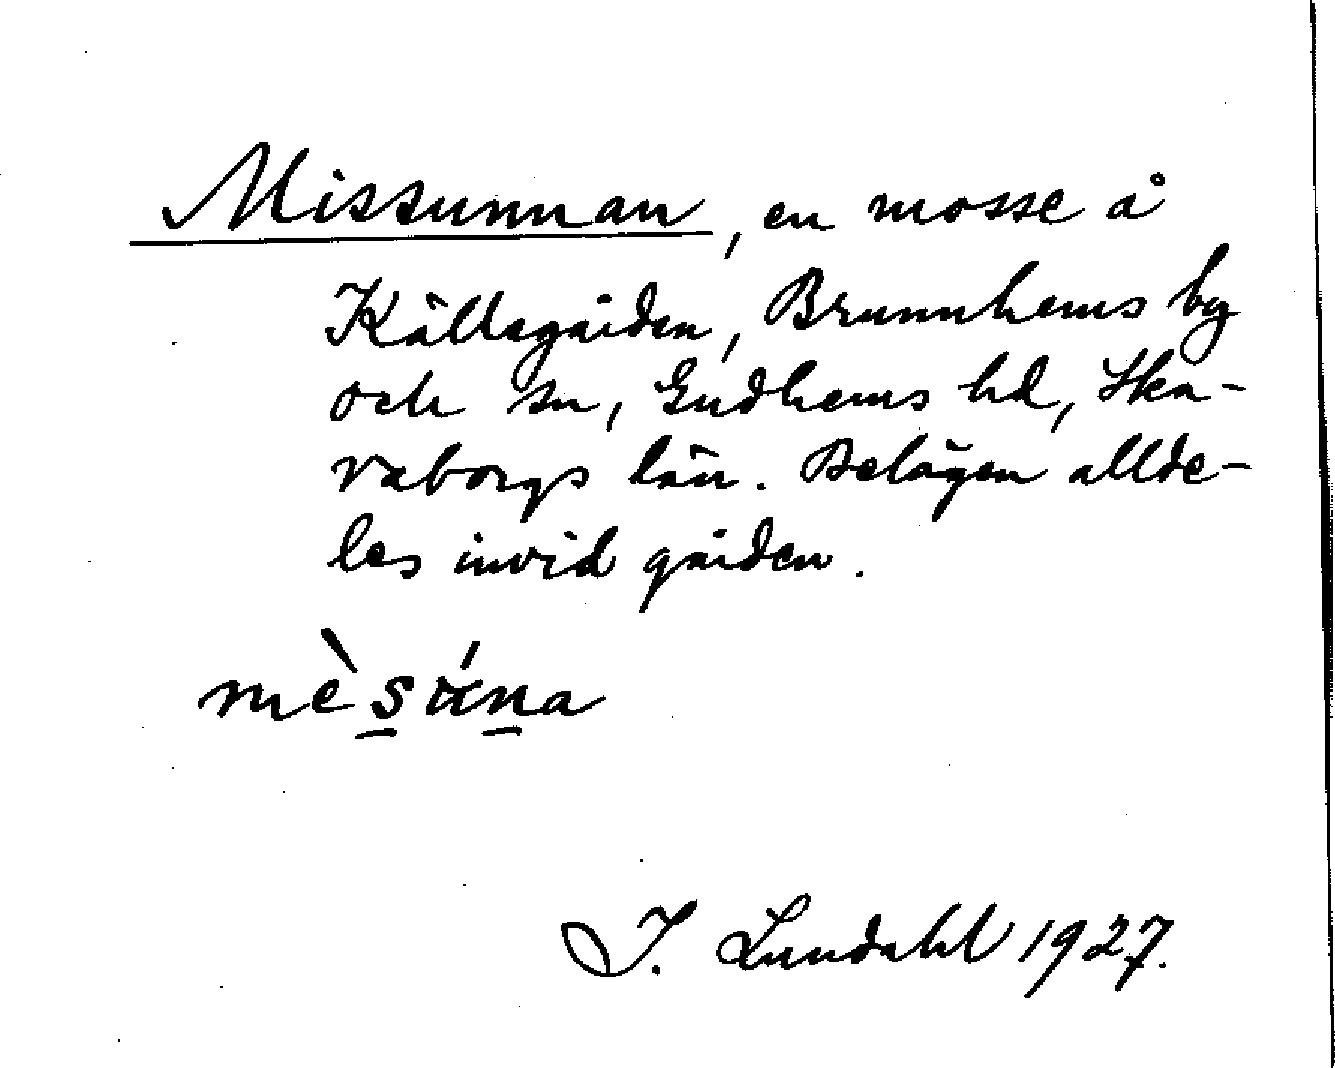 Missunnan, en mosse å
Källegården, Brunnhems by
och sn, Gudhems hd, Ska-
raborgs län. Belägen allde-
les invid gården.
I. Lundahl 1927.